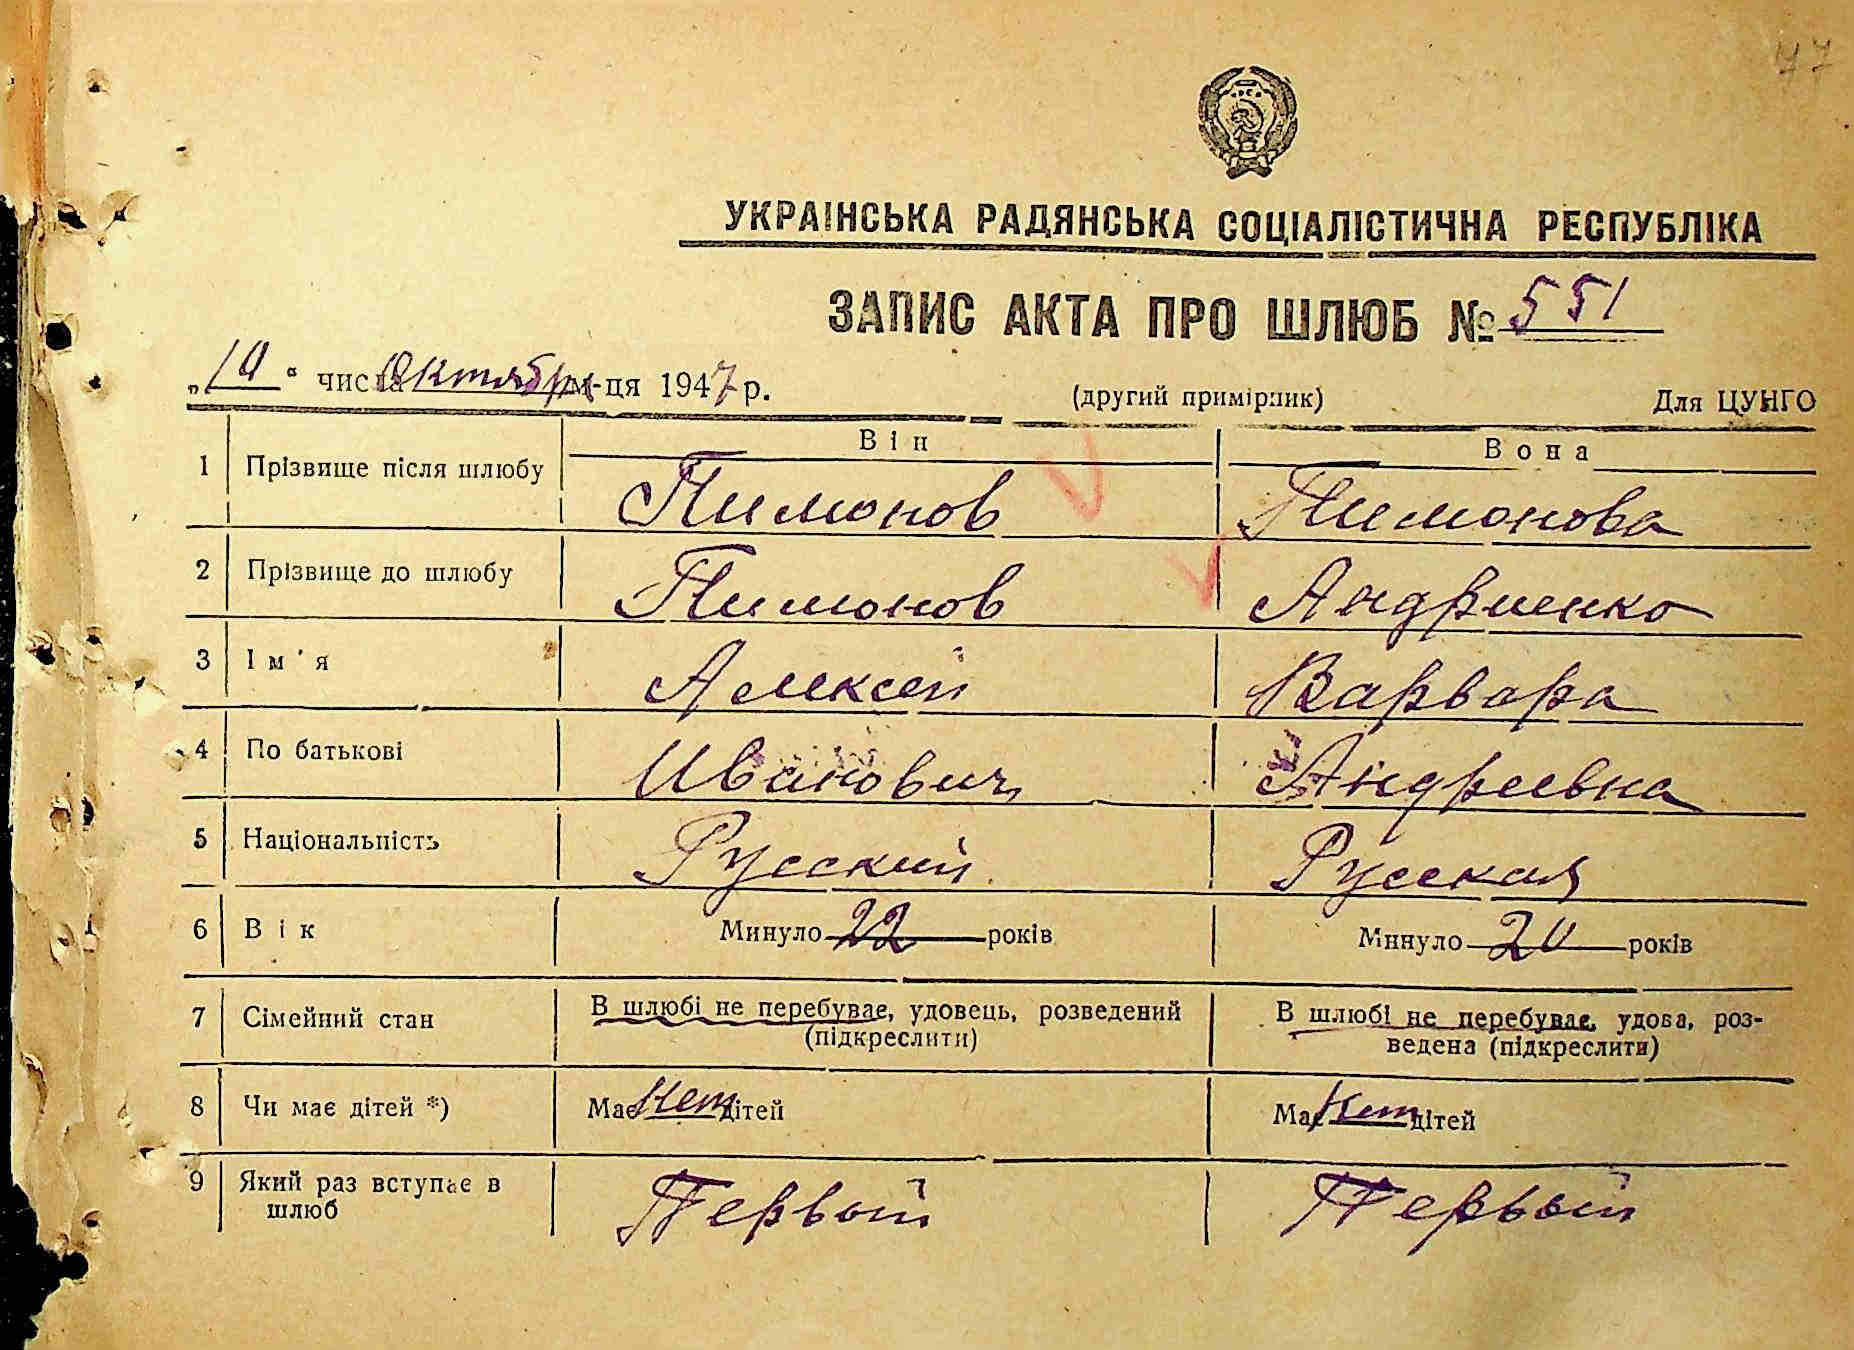 77
УКРАЇНСЬКА РАДЯНСЬКА СОЦІАЛІСТИЧНА РЕСПУБЛІКА
ЗАПИС АКТА ПРО ШЛЮБ № 551
„10“ числа Октября м-ця 1947 р. (другий примірник) Для ЦУНГО
Він Вона
1 Прізвище після шлюбу Пимонов Пимонова
2 Прізвище до шлюбу Пимонов Андриенко
3 Ім'я Алексей Варвара
4 По батькові Иванович Андреевна
5 Національність Русский Русская
6 Вік Минуло 22 років Минуло 20 років
7 Сімейний стан В шлюбі не перебуває, удовець, розведений (підкреслити) В шлюбі не перебуває, удова, роз-
ведена (підкреслити)
8 Чи має дітей *) Має Нет дітей Має Нет дітей
9 Який раз вступає в Первый Первый
шлюб